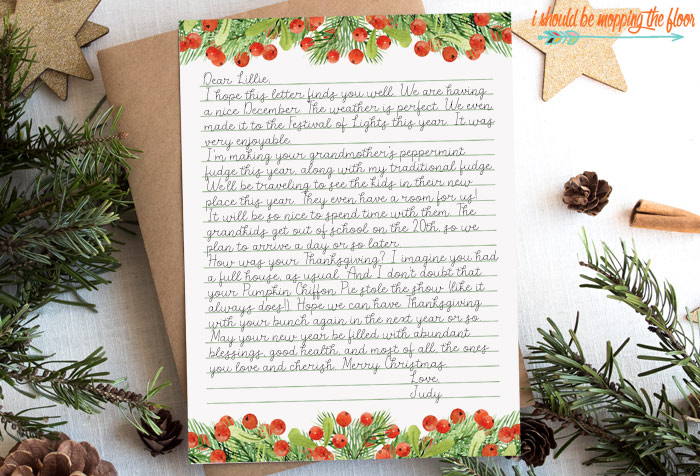 i should be mopping the floor
Dear Lillie,
I hope this letter finds you well. We are having
a nice December. The weather is perfect. We even
made it to the Festival of Lights this year. It was
very enjoyable.
I'm making your grandmother's peppermint
fudge this year, along with my traditional fudge.
We'll be traveling to see the kids in their new
place this year. They even have a room for us!
It will be so nice to spend time with them. The
grandkids get out of school on the 20th, so we
plan to arrive a day or so later.
How was your Thanksgiving? I imagine you had
a full house, as usual. And I don't doubt that
your Pumpkin Chiffon Pie stole the show (like it
always does!). Hope we can have Thanksgiving
with your bunch again in the next year or so.
May your new year be filled with abundant
blessings, good health, and most of all, the ones
you love and cherish. Merry Christmas.
Love,
Judy